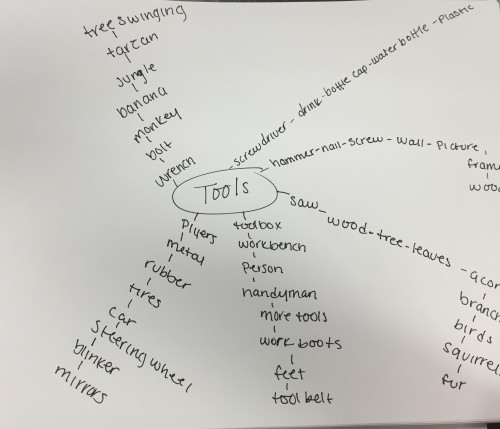 tree swinging
tarzan
jungle
banana
monkey
bolt
wrench
screwdriver - drink - bottle cap - water bottle - plastic
hammer - nail - screw - wall - picture
wood
Tools
saw - wood - tree - leaves
birds
fur
pliyers
metal
rubber
tires
car
steering wheel
blinker
mirrors
toolbox
workbench
person
handyman
more tools
work boots
feet
tool belt